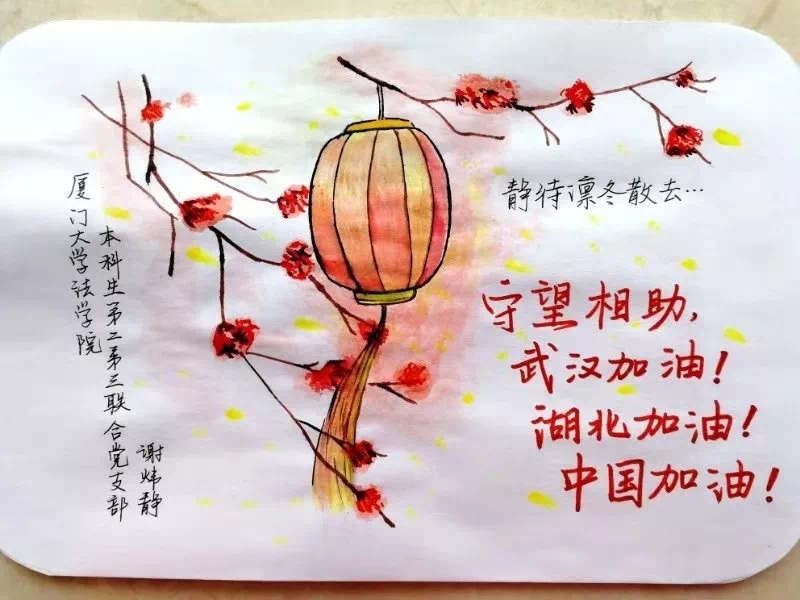 静待凛冬散去…
守望相助,
武汉加油!
湖北加油!
中国加油!
厦门大学法学院
本科生第二第三联合党支部
谢炜静